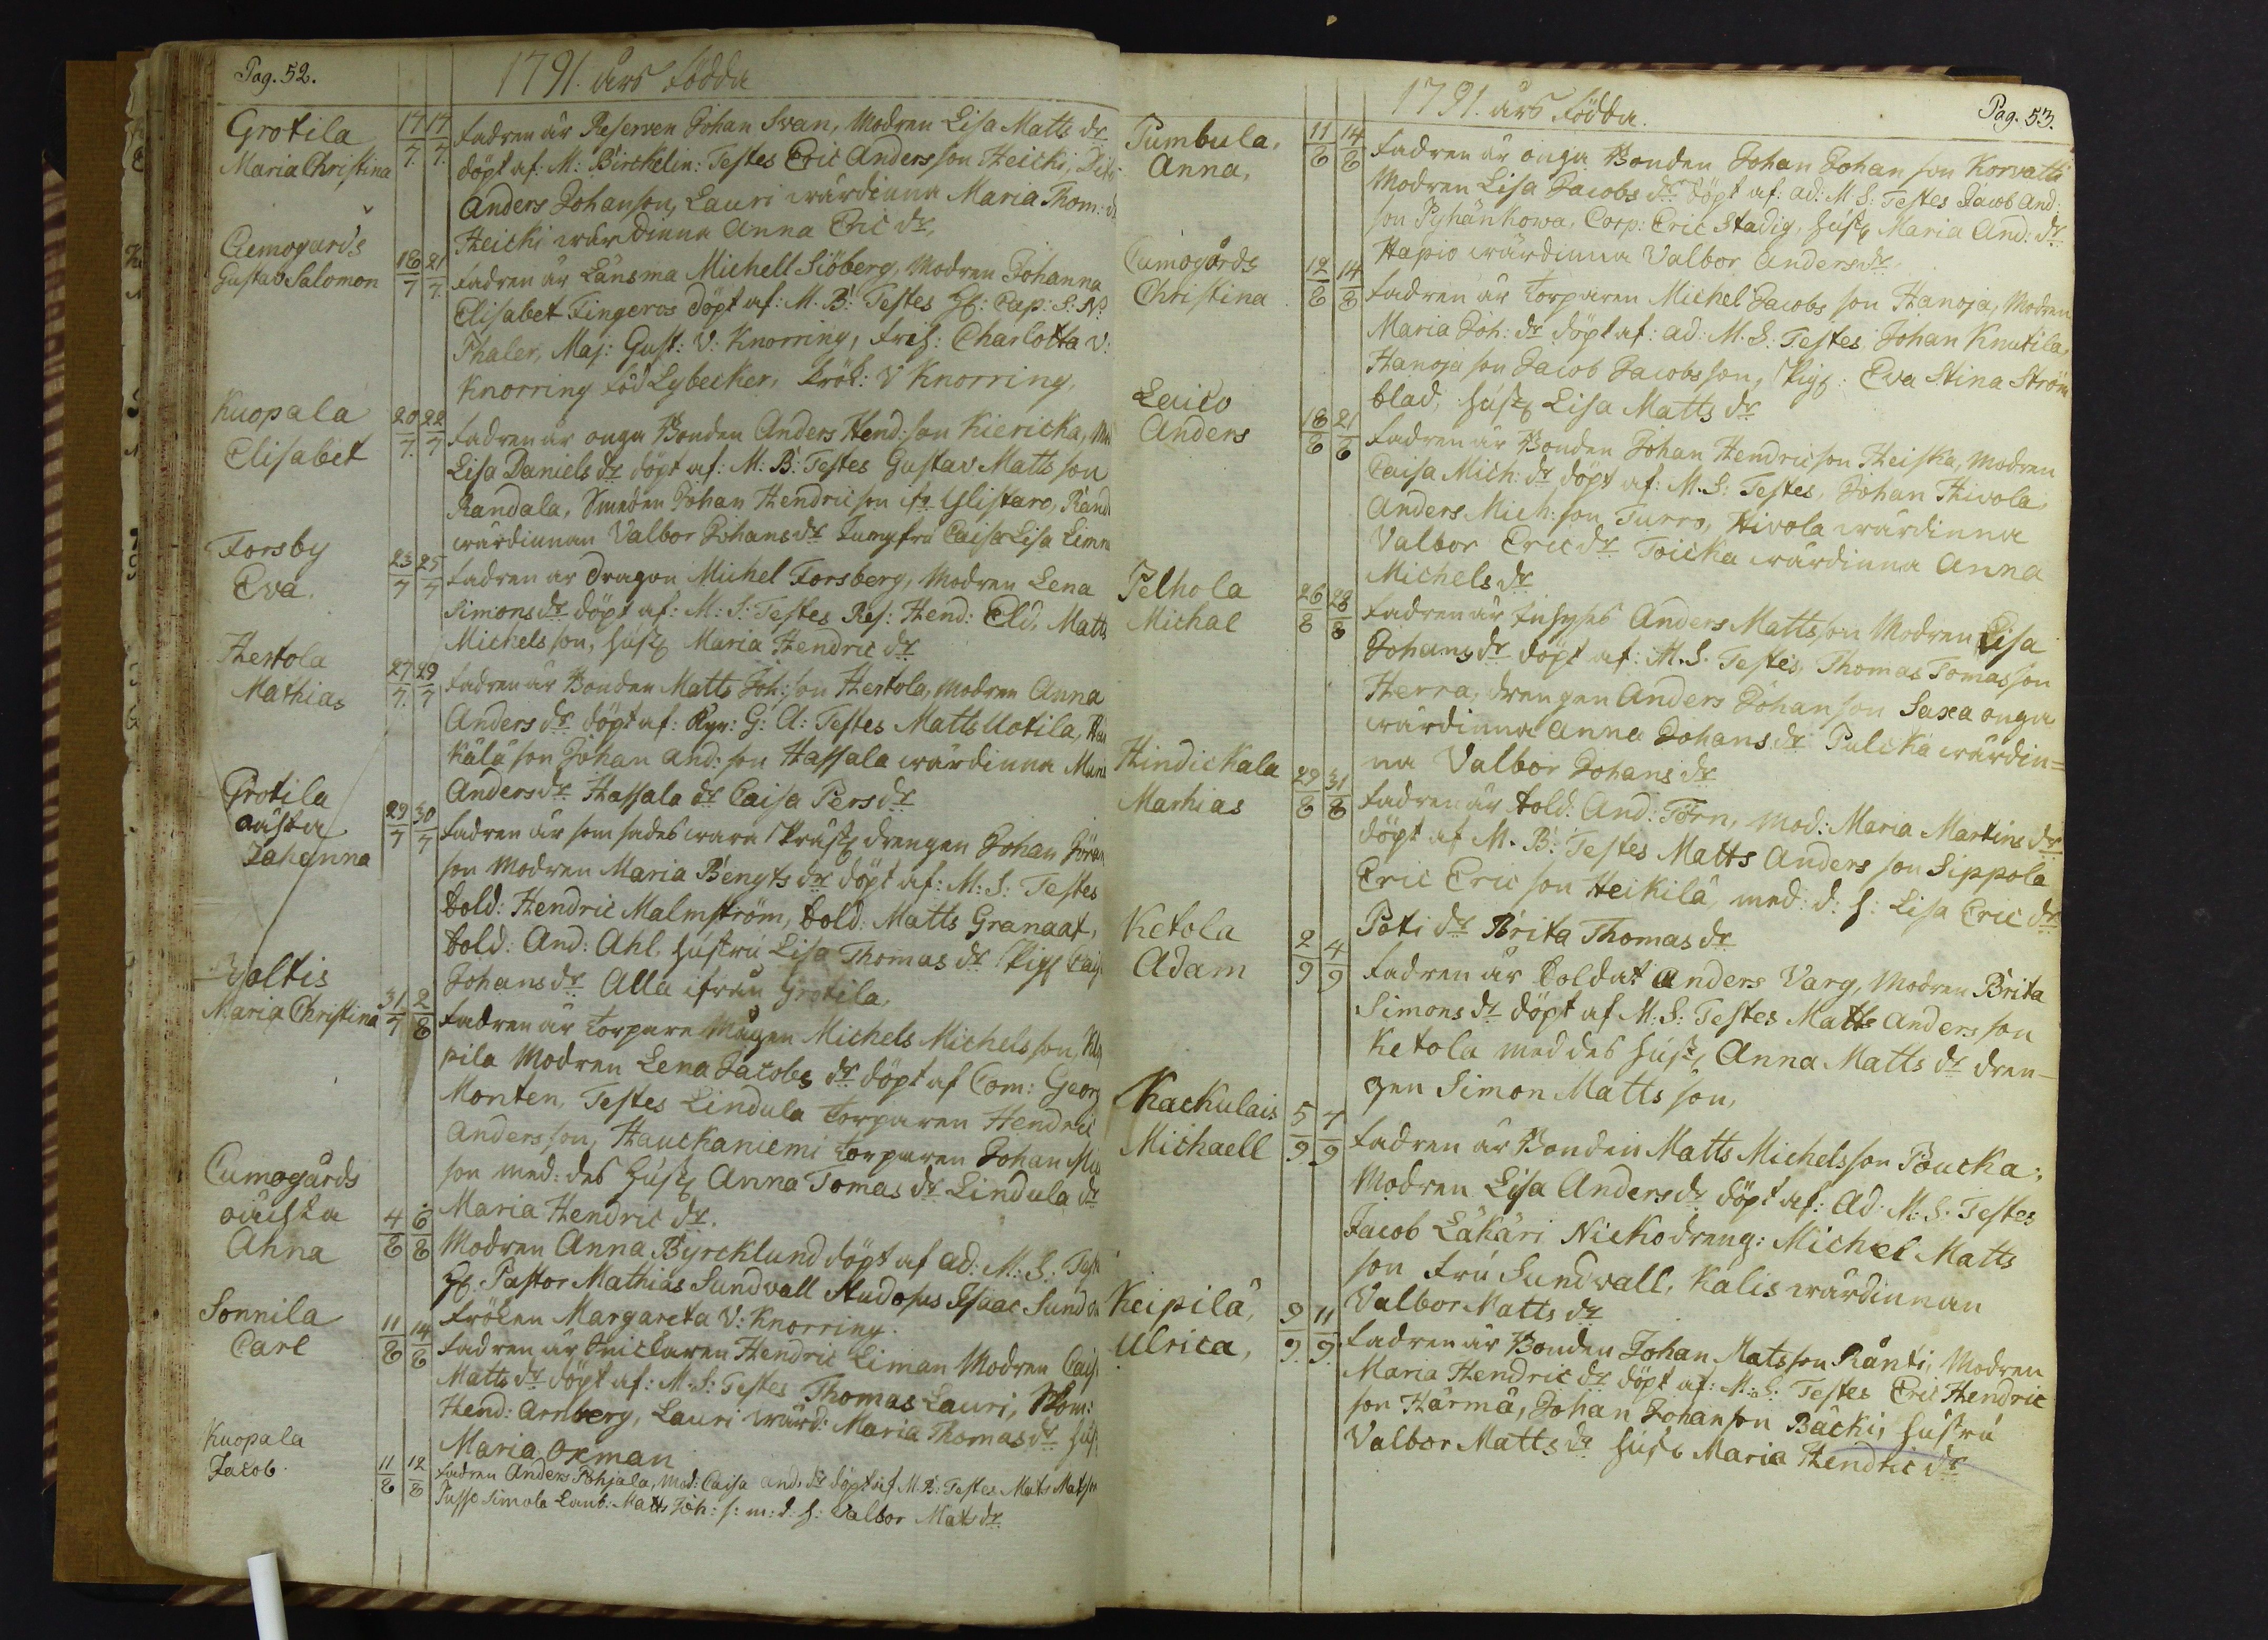 Pag. 52.
1791. års födda
Grotila 17/7. 17/7. fadren är Reserven Johan Svan, Modren Lisa Matts dr
Maria Christina döpt af: M: Birckelin: Testes Eric Andersson Heicki,
Anders Johanson, Lauri wärdinna Maria Thom: dr
Heicki wärdinna Anna Eric dr,
Cumogårds 18/7 21/7. fadren är Länsma Michell Siöberg, Modren Johanna
Gustav Salomon
Elisabet Fingeros döpt af: M. B: Testes H: Cap: S: N:
Thaler, Maj: Gust: V: Knorring, Frih: Charlotta V:
Knorring föd Lybecker, Frök: V Knorring,
Kuopala 20/7. 22/7 fadren är onga Bonden Anders Hend: son Kiericka,
Elisabet Lisa Daniels dr döpt af: M: B: Testes Gustav Matts son
Randala, Smeden Johan Hendricson fr Ylistaro, Rand
wärdinnan Valbor Johans dr Jungfru Caisa Lisa Limn
Forsby 23/7 25/7 fadren är Dragon Michel Forsberg, Modren Lena
Eva. Simons dr döpt af: M: S: Testes Res: Hend: Eld, Matts
Michels son, hust Maria Hendric dr
Hertola 27/7. 29/7 fadren är Bonden Matts Joh: son Hertola, modren Anna
Mathias Anders dr döpt af: Kyr: G: A: Testes Matts Uotila,
kälä son Johan And: son Hassala wärdinna Mari
Anders dr Hassala dr Caisa Pers dr
Grotila 29/7 30/7 fadren är som sades wara Prust drengen Johan Jöran
oäkta son Modren Maria Bengts dr döpt af: M: S: Testes
Johanna
Sold: Hendric Malmström, Sold: Matts Granaat,
Sold: And: Ahl, hustru Lisa Thomas dr Pig Cais
Johans dr Alla ifrån Grotila,
Voltis
Maria Christina 31/7 2/8 fadren är Torpare Mågen Michels Michels son,
pila Modren Lena Jacobs dr döpt af Com: Georg
Monten, Testes Lindula Torparen Hendric
Anders son, Hauckaniemi Torparen Johan Mic
son med: des Hust Anna Tomas dr Lindula dr
Maria Hendric dr.
Cumogårds
oäckta 4/8 6/8 Modren Anna Byrcklund döpt af ad: M: S: Test
Anna H. Pastor Mathias Sundvall Studosus Isaac Sundv
Fröken Margareta V: Knorring.
Sonnila 11/8 14/8 fadren är Snickaren Hendric Liman Modren Cais
Carl Matts dr döpt af: M: S: Testes Thomas Lauri,
Hend: Arnberg, Lauri wärd: Maria Thomas dr hust
Maria Oxman
Kuopala 11/8 12/8 fadren Anders Pohjala, Mod: Caisa And: dr döpt af M. B: Testes Mats Matson
Jacob. Pusso Simola Lanb: Matts Joh: s: m: d: h: Valbor Mats dr
1791. års födda.
Pag. 53.
Pumbula, 11/8 14/8 fadren är onga Bonden Johan Johan son Korvatti
Anna, Modren Lisa Jacobs dr döpt af: ad: M S: Testes Jacob And:
son Pyhänkowa, Corp: Eric Stadig, hust Maria And: dr
Hapio wärdinna Valbor Anders dr
Cumogårds 12/8 14/8 fadren är Torparen Michel Jacobs son Hanoja, Modren
Christina Maria Joh: dr döpt af: ad: M. S: Testes Johan Knutila,
Hanoja son Jacob Jacobsson, Pig: Eva Stina Ström
blad, hust Lisa Matts dr
Laico 18/8 21/8 fadren är Bonden Johan Hendricson Heiska, Modren
Anders Caisa Mich: dr döpt af: M. S: Testes, Johan Hivola,
Anders Mich: son Turro, Hivola wärdinna
Valbor Eric dr Toicka wärdinna Anna
Michels dr
Pelhola 26/8 28/8 fadren är Inhyses Anders Mattsson Modren Lisa
Michal Johans dr döpt af: M. S. Testes, Thomas Tomasson
Herra, drengen Anders Johanson Saxa onga
wärdinna Anna Johans dr Pulcka wärdin=
na Valbor Johans dr
Hindickala 29/8 31/8 fadren är Sold: And: Törn, Mod: Maria Martins dr
Marhias döpt af M. B: Testes Matts Anders son Sippola
Eric Eric son Heikilä, med: d: h: Lisa Eric dr
Poti dr Brita Thomas dr
Ketola 2/9 4/9 fadren är Soldat Anders Varg, Modren Brita
Adam Simons dr döpt af M: S: Testes Matts Anders son
Ketola med des hust Anna Matts dr dren-
gen Simon Matts son,
Kackulais 5/9 7/9 fadren är Bonden Matts Michelsson Poucka,
Michaell Modren Lisa Anders dr döpt af: Ad: M: S: Testes
Jacob Läkäri Nickodreng: Michel Matts
son fru Sundvall, Kalis wärdinnan
Valbor Matts dr
Keipilä, 9/9 11/9 fadren är Bonden Johan Matsson Ränti, Modren
Ulrica, Maria Hendric dr döpt af: M: S: Testes Eric Hendric
son Härmä, Johan Johanson Bäcki, hustru
Valbor Matts dr hust Maria Hendric dr